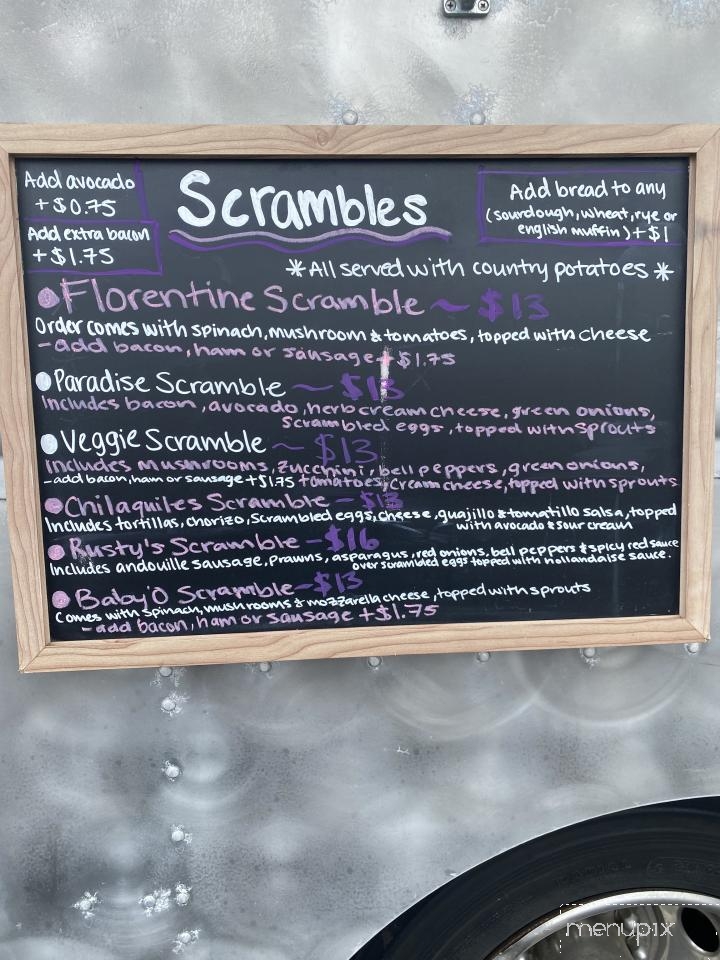 Add avocado
+$0.75
Add extra bacon
+$1.75
Scrambles
Add bread to any
(sourdough, wheat, rye or
english muffin) +$1
*All served with country potatoes*
Florentine Scramble ~ $13
Order comes with spinach, mushroom & tomatoes, topped with cheese
-add bacon, ham or sausage +$1.75
Paradise Scramble ~ $13
Includes bacon, avocado, herb cream cheese, green onions,
scrambled eggs, topped with sprouts
Veggie Scramble ~ $13
Includes mushrooms, zucchini, bell peppers, green onions,
-add bacon, ham or sausage +$1.75 tomatoes, cream cheese, topped with sprouts
Chilaquiles Scramble - $13
Includes tortillas, chorizo, scrambled eggs, cheese, guajillo & tomatillo salsa, topped
with avocado & sour cream
Rusty's Scramble - $16
Includes andouille sausage, prawns, asparagus, red onions, bell peppers & spicy red sauce
over scrambled eggs topped with hollandaise sauce.
Baby'O Scramble - $13
Comes with spinach, mushrooms & mozzarella cheese, topped with sprouts
-add bacon, ham or sausage +$1.75
menupix